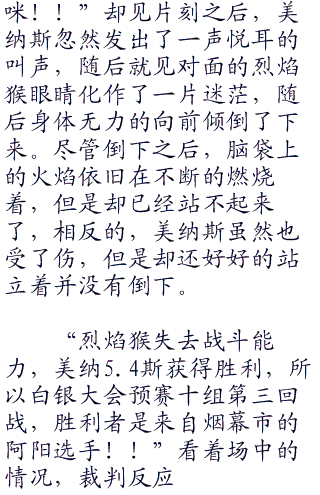 咪！！”却见片刻之后，美
纳斯忽然发出了一声悦耳的
叫声，随后就见对面的烈焰
猴眼睛化作了一片迷茫，随
后身体无力的向前倾倒了下
来。尽管倒下之后，脑袋上
的火焰依旧在不断的燃烧
着，但是却已经站不起来
了，相反的，美纳斯虽然也
受了伤，但是却还好好的站
立着并没有倒下。
“烈焰猴失去战斗能
力，美纳5.4斯获得胜利，所
以白银大会预赛十组第三回
战，胜利者是来自烟幕市的
阿阳选手！！”看着场中的
情况，裁判反应